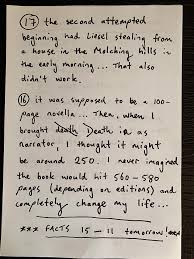 (17) the second attempted
beginning had Liesel stealing from
a house in the Molching hills in
the early morning... That also
didn't work.
(16) it was supposed to be a 100-
page novella... Then, when I
brought death Death in as
narrator, I thought it might
be around 250. I never imagined
the book would hit 560-580
pages (depending on editions) and
completely change my life...
*** FACTS 15-11 tomorrow